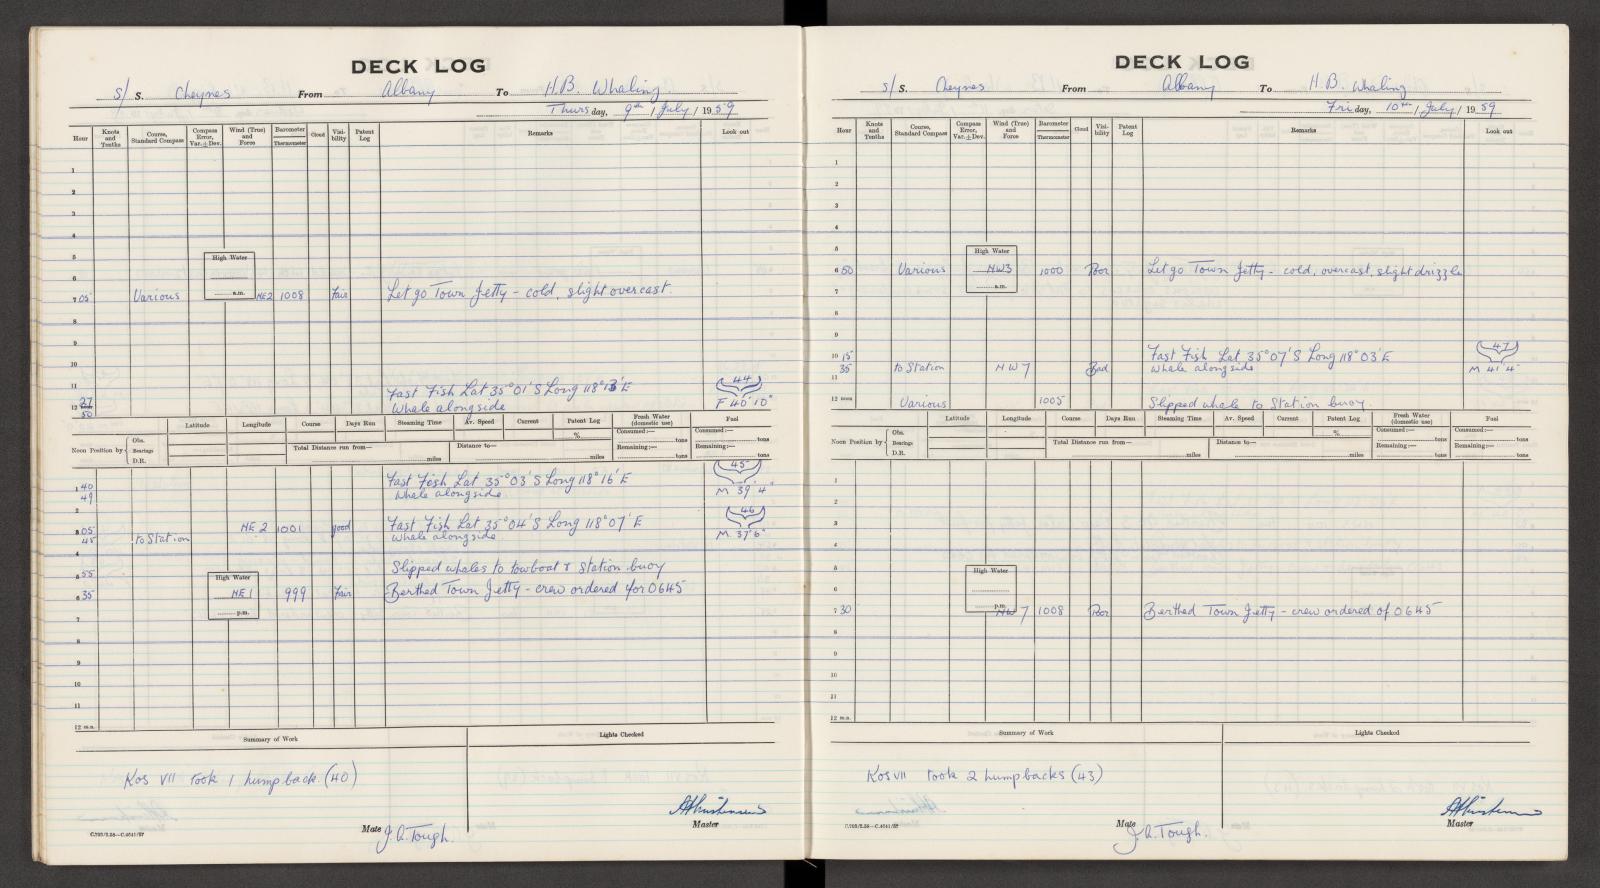 DECK LOG
S/ S. Cheynes From Albany To H.B. Whaling
Thursday, 9th / July / 1959
Hour Knots and Tenths Course, Standard Compass Compass Error, Var. ± Dev. Wind (True) and Force Barometer Thermometer Cloud Visibility Patent Log Remarks Look out
1
2
3
4
5
High Water
6
a.m.
7 05 Various NE2 1008 Fair Let go Town Jetty - cold, slight overcast.
8
9
10
11
27 Fast Fish Lat 35°01'S Long 118°13'E 44
12 noon 50 Whale alongside F 40'10"
Latitude Longitude Course Days Run Steaming Time Av. Speed Current Patent Log Fresh Water (domestic use) Fuel
% Consumed:— tons Consumed:— tons
Noon Position by Obs. Bearings D.R. Total Distance run from— miles Distance to— miles Remaining:— tons Remaining:— tons
1 40 Fast Fish Lat 35°03'S Long 118°16'E 45
49 Whale alongside M 39'4"
2
3 05 NE 2 1001 good Fast Fish Lat 35°04'S Long 118°07'E 46
45 to Station Whale alongside M 37'6"
4
5 55 Slipped whales to towboat & Station buoy
High Water
6 35 NE1 999 Fair Berthed Town Jetty - crew ordered for 0645
p.m.
7
8
9
10
11
12 m.n.
Summary of Work Lights Checked
Kos VII took 1 humpback (40)
Mate J.A. Tough. Master
C.703/2.58—C.4641/57
DECK LOG
S/ S. Cheynes From Albany To H.B. Whaling
Friday, 10th / July / 1959
Hour Knots and Tenths Course, Standard Compass Compass Error, Var. ± Dev. Wind (True) and Force Barometer Thermometer Cloud Visibility Patent Log Remarks Look out
1
2
3
4
5
High Water
6 50 Various NW3 1000 Poor Let go Town Jetty - cold, overcast, slight drizzle
a.m.
7
8
9
10 15 Fast Fish Lat 35°07'S Long 118°03'E 47
35 to Station NW 7 Bad Whale alongside M 41'4"
11
12 noon Various 1005 Slipped whale to Station buoy.
Latitude Longitude Course Days Run Steaming Time Av. Speed Current Patent Log Fresh Water (domestic use) Fuel
% Consumed:— tons Consumed:— tons
Noon Position by Obs. Bearings D.R. Total Distance run from— miles Distance to— miles Remaining:— tons Remaining:— tons
1
2
3
4
5
High Water
6
p.m.
7 30 NW 7 1008 Poor Berthed Town Jetty - crew ordered of 0645
8
9
10
11
12 m.n.
Summary of Work Lights Checked
Kos VII took 2 humpbacks (43)
Mate J.A. Tough. Master
C.703/2.58—C.4641/57